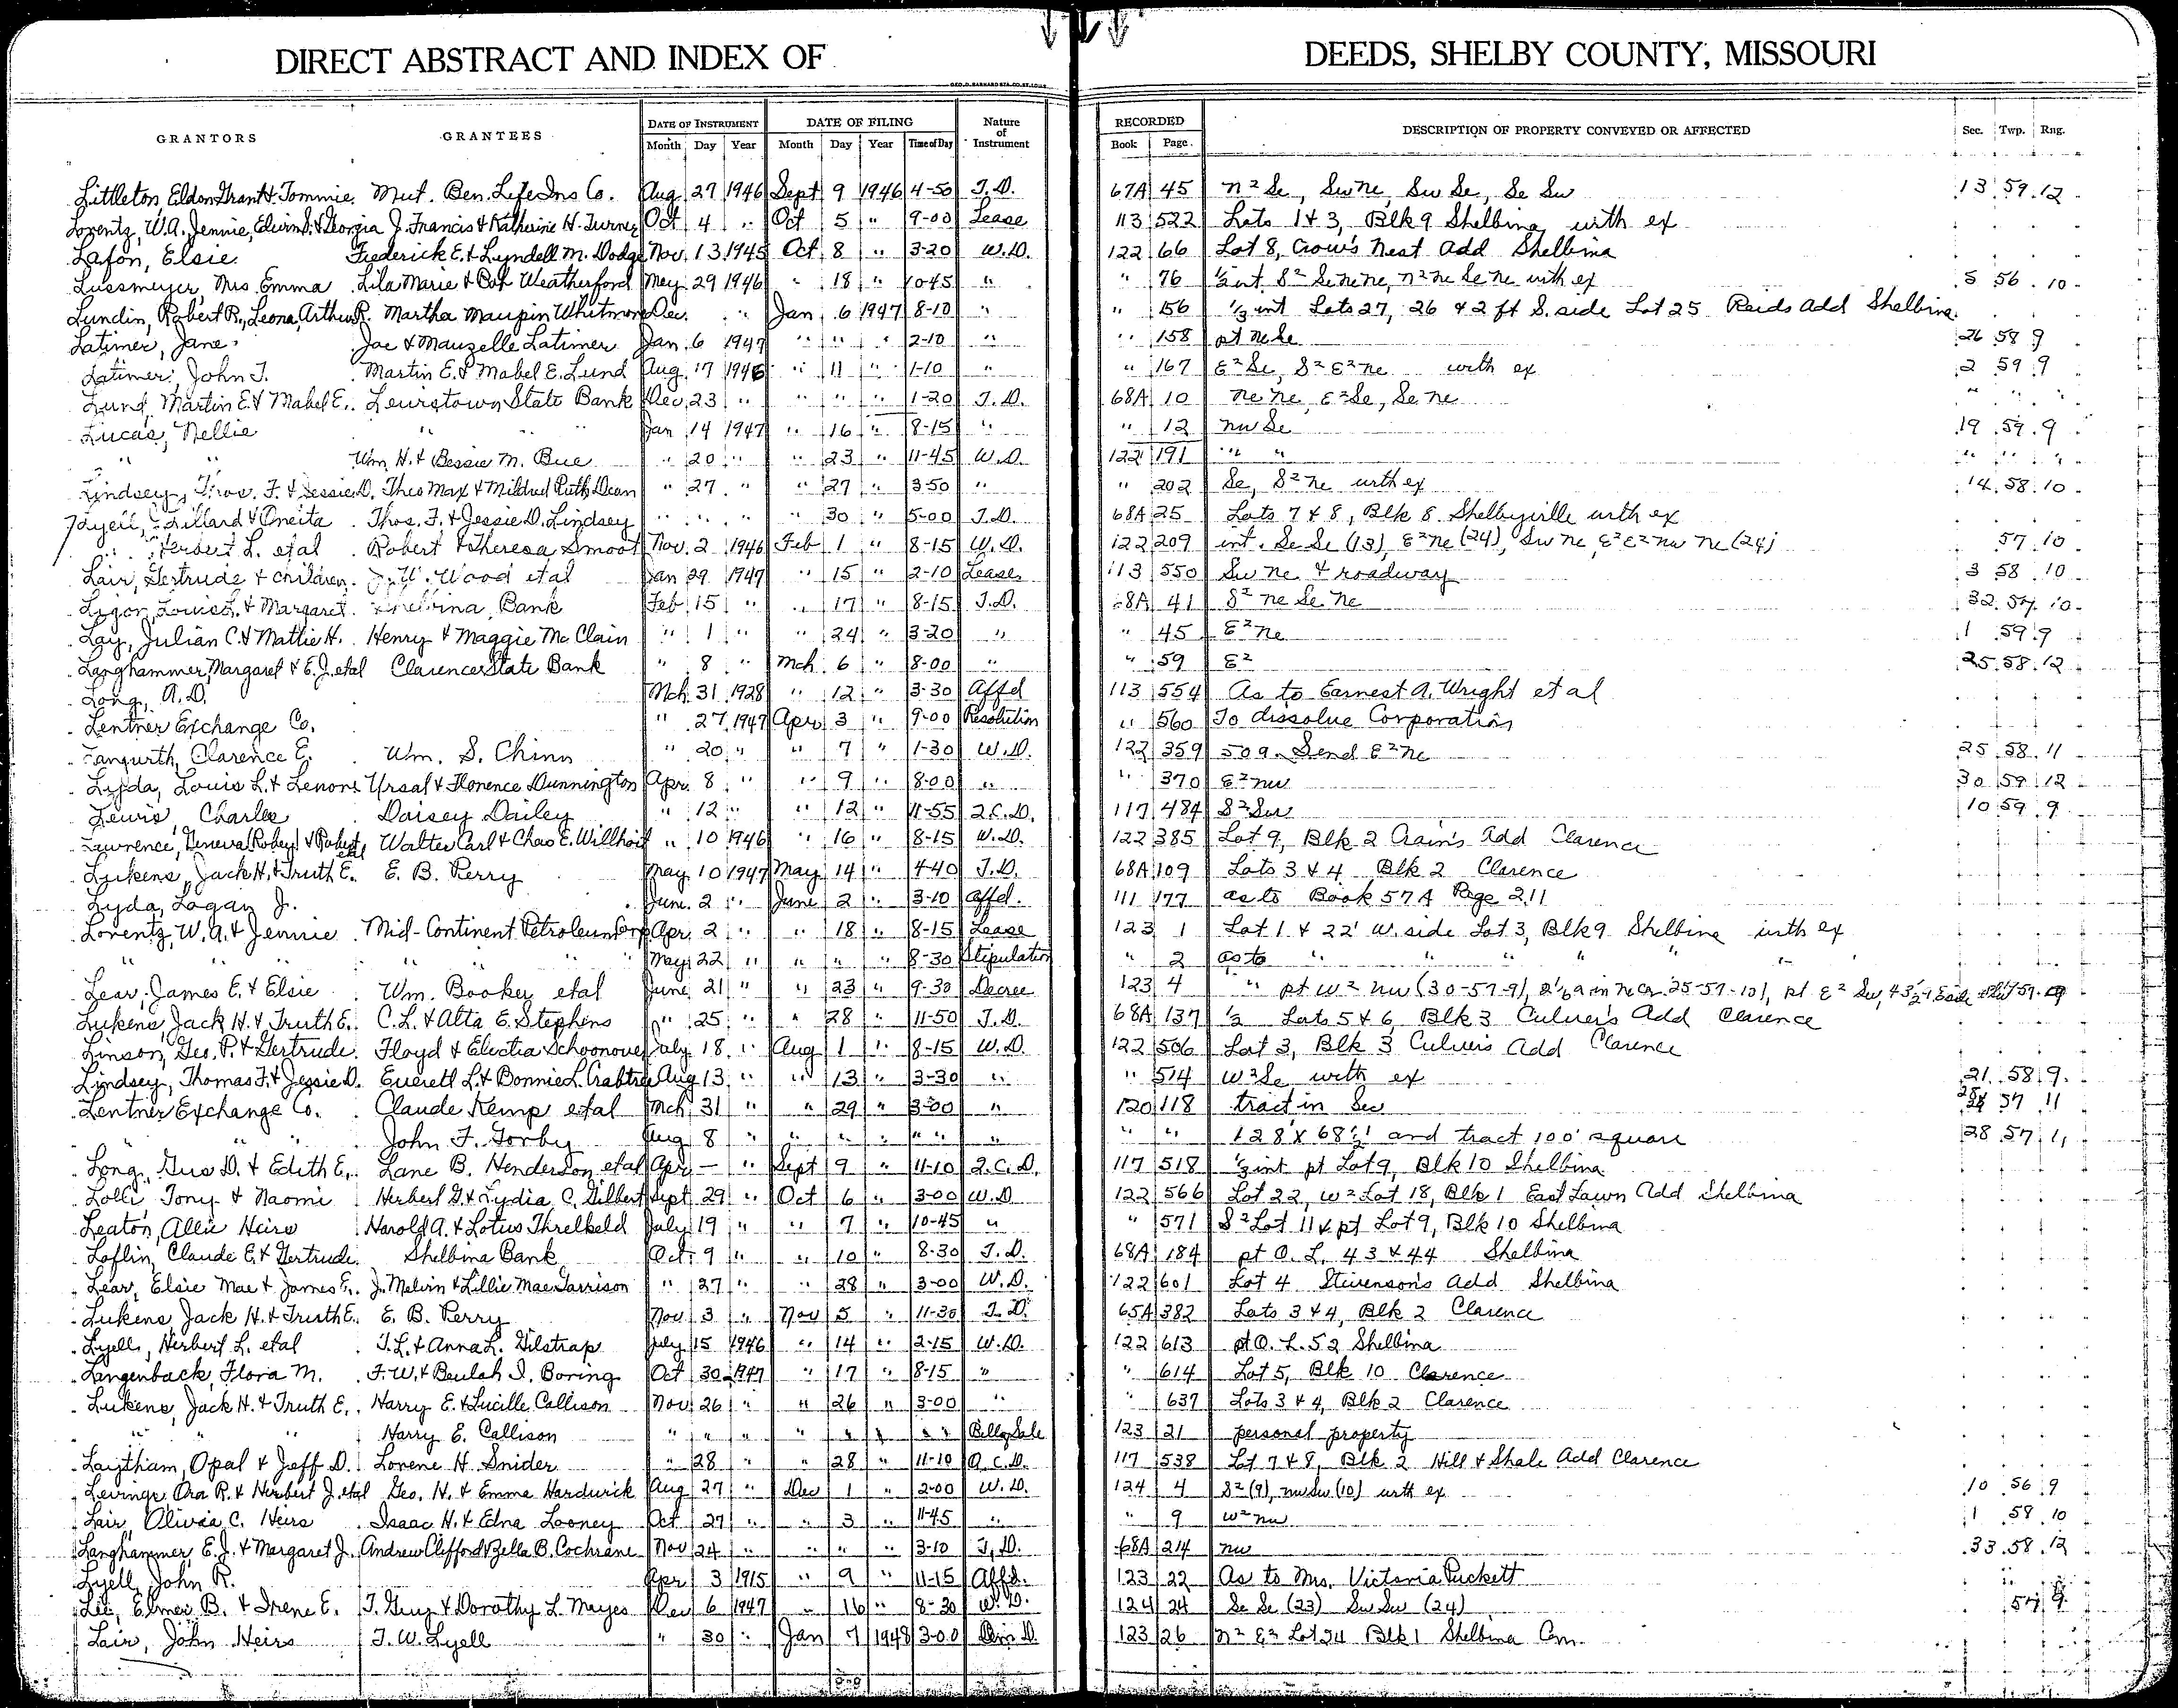 DIRECT ABSTRACT AND INDEX OF DEEDS, SHELBY COUNTY, MISSOURI
GRANTORS GRANTEES DATE OF INSTRUMENT DATE OF FILING Nature of Instrument RECORDED DESCRIPTION OF PROPERTY CONVEYED OR AFFECTED Sec. Twp. Rng.
Month Day Year Month Day Year Time of Day Book Page
Littleton, Eldon Grant & Tommie Mut. Ben. Life Ins Co. Aug 27 1946 Sept 9 1946 4-50 T.D. 67A 45 n2 Se, Swne, Sw Se, Se Sw 13 59 12
Lorentz, W.A. Jennie, Edwin D. & Georgia J. Francis & Katherine H. Turner Oct 4 " Oct 5 " 9-00 Lease 113 522 Lots 1 & 3, Blk 9 Shelbina with ex
Lafon, Elsie Frederick E. & Lyndell M. Dodge Nov. 13 1945 Oct 8 " 3-20 W.D. 122 66 Lot 8, Crow's Nest Add Shelbina
Lussmeyer, Mrs. Emma Lila Marie & Weatherford May 29 1946 " 18 " 10-45 " " 76 ½ int S2 Senene, n2ne Sene with ex 5 56 10
Lundin, Robert R., Leona, Arthur R. Martha Maupin Whitmore Dec. " Jan 6 1947 8-10 " " 156 ⅓ int Lots 27, 26 & 2 ft S. side Lot 25 Reids Add Shelbina
Latimer, Jane Joe & Mauzelle Latimer Jan 6 1947 " " " 2-10 " " 158 pt nese 26 58 9
Latimer, John T. Martin E. & Mabel E. Lund Aug. 17 1946 " 11 " 1-10 " " 167 E2 Se, S2 E2 ne with ex 2 59 9
Lund, Martin E. & Mabel E. Lewistown State Bank Dec 23 " " " " 1-20 T.D. 68A 10 ne ne, E2Se, Se ne " " "
Lucas, Nellie " " " Jan 14 1947 " 16 " 8-15 " " 12 nw Se 19 59 9
" " Wm. H. & Bessie M. Bue " 20 " " 23 " 11-45 W.D. 122 191 " " " " "
Lindsey, Thos. F. & Jessie D. Theo Max & Mildred Ruth Dean " 27 " " 27 " 3-50 " " 202 Se, S2 ne with ex 14 58 10
Lyell, Dillard & Oneita Thos. F. & Jessie D. Lindsey " " " " 30 " 5-00 T.D. 68A 25 Lots 7 & 8, Blk 8 Shelbyville with ex
" Herbert L. etal Robert & Theresa Smoot Nov. 2 1946 Feb 1 " 8-15 W.D. 122 209 int. Se Se (13), E2 ne (24), Sw ne, E2 E2 nw ne (24) 57 10
Lair, Gertrude & children J.W. Wood etal Jan 29 1947 " 15 " 2-10 Lease 113 550 Sw ne & roadway 3 58 10
Ligon, Louis L. & Margaret Shelbina Bank Feb 15 " " 17 " 8-15 T.D. 68A 41 S2 ne Se ne 32 57 10
Lay, Julian C. & Mattie H. Henry & Maggie McClain " 1 " " 24 " 3-20 " " 45 E2 ne 1 59 9
Langhammer, Margaret & E.J. etal Clarence State Bank " 8 " Mch 6 " 8-00 " " 59 E2 25 58 12
Long, A.D. Mch. 31 1928 " 12 " 3-30 Affd 113 554 As to Earnest A. Wright et al
Lentner Exchange Co. " 27 1947 Apr 3 " 9-00 Resolution " 560 To dissolve Corporation
Clarence E. Wm. S. Chinn " 20 " " 7 " 1-30 W.D. 122 359 50 a. S end E2 ne 25 58 11
Lyda, Louis L. & Lenora Ursal & Florence Dunnington Apr. 8 " " 9 " 8-00 " " 370 E2 nw 30 59 12
Lewis, Charles Daisey Dailey " 12 " " 12 " 11-55 Q.C.D. 117 484 S2 Sw 10 59 9
Lawrence, Geneva Robey & Robert etal Walter Carl & Chas E. Willhoit " 10 1946 " 16 " 8-15 W.D. 122 385 Lot 9, Blk 2 Crain's Add Clarence
Lukens, Jack H. & Truth E. E. B. Perry May 10 1947 May 14 " 4-40 T.D. 68A 109 Lots 3 & 4 Blk 2 Clarence
Lyda, Logan J. June 2 " June 2 " 3-10 Affd. 111 177 as to Book 57A Page 211
Lorentz, W.A. & Jennie Mid-Continent Petroleum Corp Apr. 2 " " 18 " 8-15 Lease 123 1 Lot 1 & 22' W. side Lot 3, Blk 9 Shelbina with ex
" " " " " " May 22 " " " " 8-30 Stipulation " 2 as to " " " " " "
Lear, James E. & Elsie Wm. Booker etal June 21 " " 23 " 9-30 Decree 123 4 " pt W2 nw (30-57-9), in ne cr. 25-57-10), pt E2 Sw,
Lukens, Jack H. & Truth E. C.L. & Alta E. Stephens " 25 " " 28 " 11-50 T.D. 68A 137 ½ Lots 5 & 6 Blk 3 Culver's Add Clarence
Linson, Geo. P. & Gertrude Floyd & Electia Schoonover July 18 " Aug 1 " 8-15 W.D. 122 506 Lot 3, Blk 3 Culvers Add Clarence
Lindsey, Thomas F. & Jessie D. Everett L. & Bonnie L. Crabtree Aug 13 " " 13 " 3-30 " " 514 W2 Se with ex 21 58 9
Lentner Exchange Co. Claude Kemp etal Mch 31 " " 29 " 3-00 " 120 118 tract in Sec 57 11
" " " John F. Gorby Aug 8 " " " " " " " " " 128' x 68½' and tract 100' square 28 57 11
Long, Gus D. & Edith E. Lane B. Henderson etal Apr — " Sept 9 " 11-10 Q.C.D. 117 518 ⅓ int pt Lot 9, Blk 10 Shelbina
Lolli Tony & Naomi Herbert G. & Lydia C. Gilbert Sept 29 " Oct 6 " 3-00 W.D 122 566 Lot 22, W2 Lot 18, Blk 1 East Lawn Add Shelbina
Leaton, Allie Heirs Harold A. & Lotus Threlkeld July 19 " " 7 " 10-45 " " 571 S2 Lot 11 & pt Lot 9, Blk 10 Shelbina
Loflin, Claude E. & Gertrude Shelbina Bank Oct. 9 " " 10 " 8-30 T.D. 68A 184 pt O. L. 43 & 44 Shelbina
Lear, Elsie Mae & James E. J. Melvin & Lillie Mae Garrison " 27 " " 28 " 3-00 W.D. 122 601 Lot 4 Stevenson's Add Shelbina
Lukens, Jack H. & Truth E. E. B. Perry Nov 3 " Nov 5 " 11-30 T.D. 65A 382 Lots 3 & 4, Blk 2 Clarence
Lyell, Herbert L. etal T.L. & Anna L. Gilstrap July 15 1946 " 14 " 2-15 W.D. 122 613 pt O. L. 52 Shelbina
Langenback, Flora M. F.W. & Beulah I. Boring Oct 30 1947 " 17 " 8-15 " " 614 Lot 5, Blk 10 Clarence
Lukens, Jack H. & Truth E. Harry E. & Lucille Callison Nov 26 " " 26 " 3-00 " " 637 Lots 3 & 4, Blk 2 Clarence
" " " Harry E. Callison " " " " " " " " Bill of Sale 123 21 personal property
Opal & Jeff D. Lorene H. Snider " 28 " " 28 " 11-10 Q.C.D. 117 538 Lot 7 & 8, Blk 2 Hill & Shale Add Clarence
Levings Ora R. & Herbert J. etal Geo. H. & Emma Hardwick Aug 27 " Dec 1 " 2-00 W.D. 124 4 S2 (9), nwSw (10) with ex 10 56 9
Lair, Olivia C. Heirs Isaac H. & Edna Looney Oct 27 " " 3 " 11-45 " " 9 W2 nw 1 58 10
Langhammer, E.J. & Margaret J. Andrew Clifford & Zella B. Cochrane Nov 24 " " " " 3-10 T.D. 68A 214 nw 33 58 12
Lyell, John R. Apr 3 1915 " 9 " 11-15 Affd. 123 22 As to Mrs. Victoria Puckett
Lee, Elmer B. & Irene E. T. Guy & Dorothy L. Mayes Dec 6 1947 " 16 " 8-30 W.D. 124 24 Se Se (23) Sw Sw (24) 57 9
Lair, John Heirs T. W. Lyell " 30 " Jan 7 1948 3-00 D. 123 26 n2 E2 Lot 24 Blk 1 Shelbina Cem.